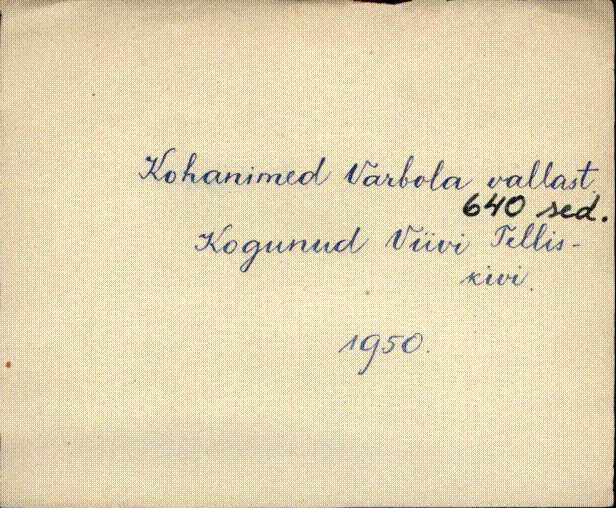 Kohanimed Varbola vallast.
640 sed.
Kogunud Viivi Tellis-
kivi.
1950.